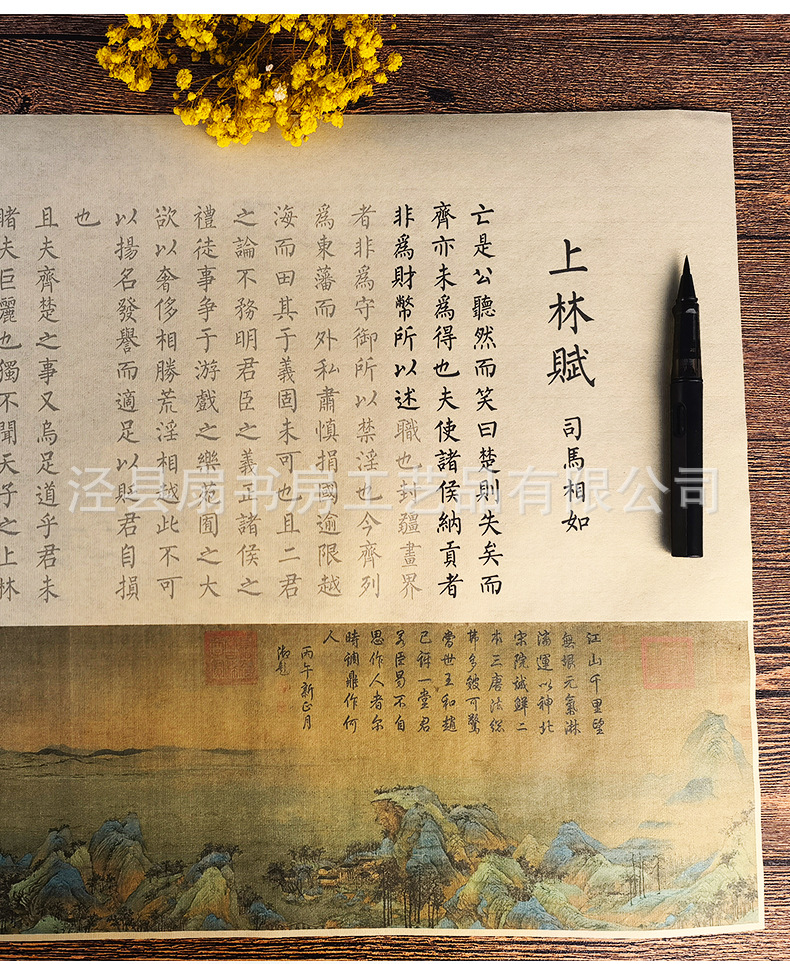 上林賦 司馬相如
亡是公聽然而笑曰楚則失矣而
齊亦未爲得也夫使諸侯納貢者
非爲財幣所以述職也封疆畫界
者非爲守御所以禁淫也今齊列
爲東藩而外私肅慎捐國逾限越
海而田其于義固未可也且二君
之論不務明君臣之義正諸侯之
禮徒事争于游戲之樂苑囿之大
欲以奢侈相勝荒淫相越此不可
以揚名發譽而適足以貶君自損
也
且夫齊楚之事又烏足道乎君未
睹夫巨麗也獨不聞天子之上林
泾县扇书房工艺品有限公司
江山千里望
無垠元氣淋
漓運以神北
宋院誠鮮二
本三唐法總
弗多皴可驚
當世王和趙
已訝一堂君
若臣易不自
思作人者尔
時調鼎作何
人
丙午新正月
御題